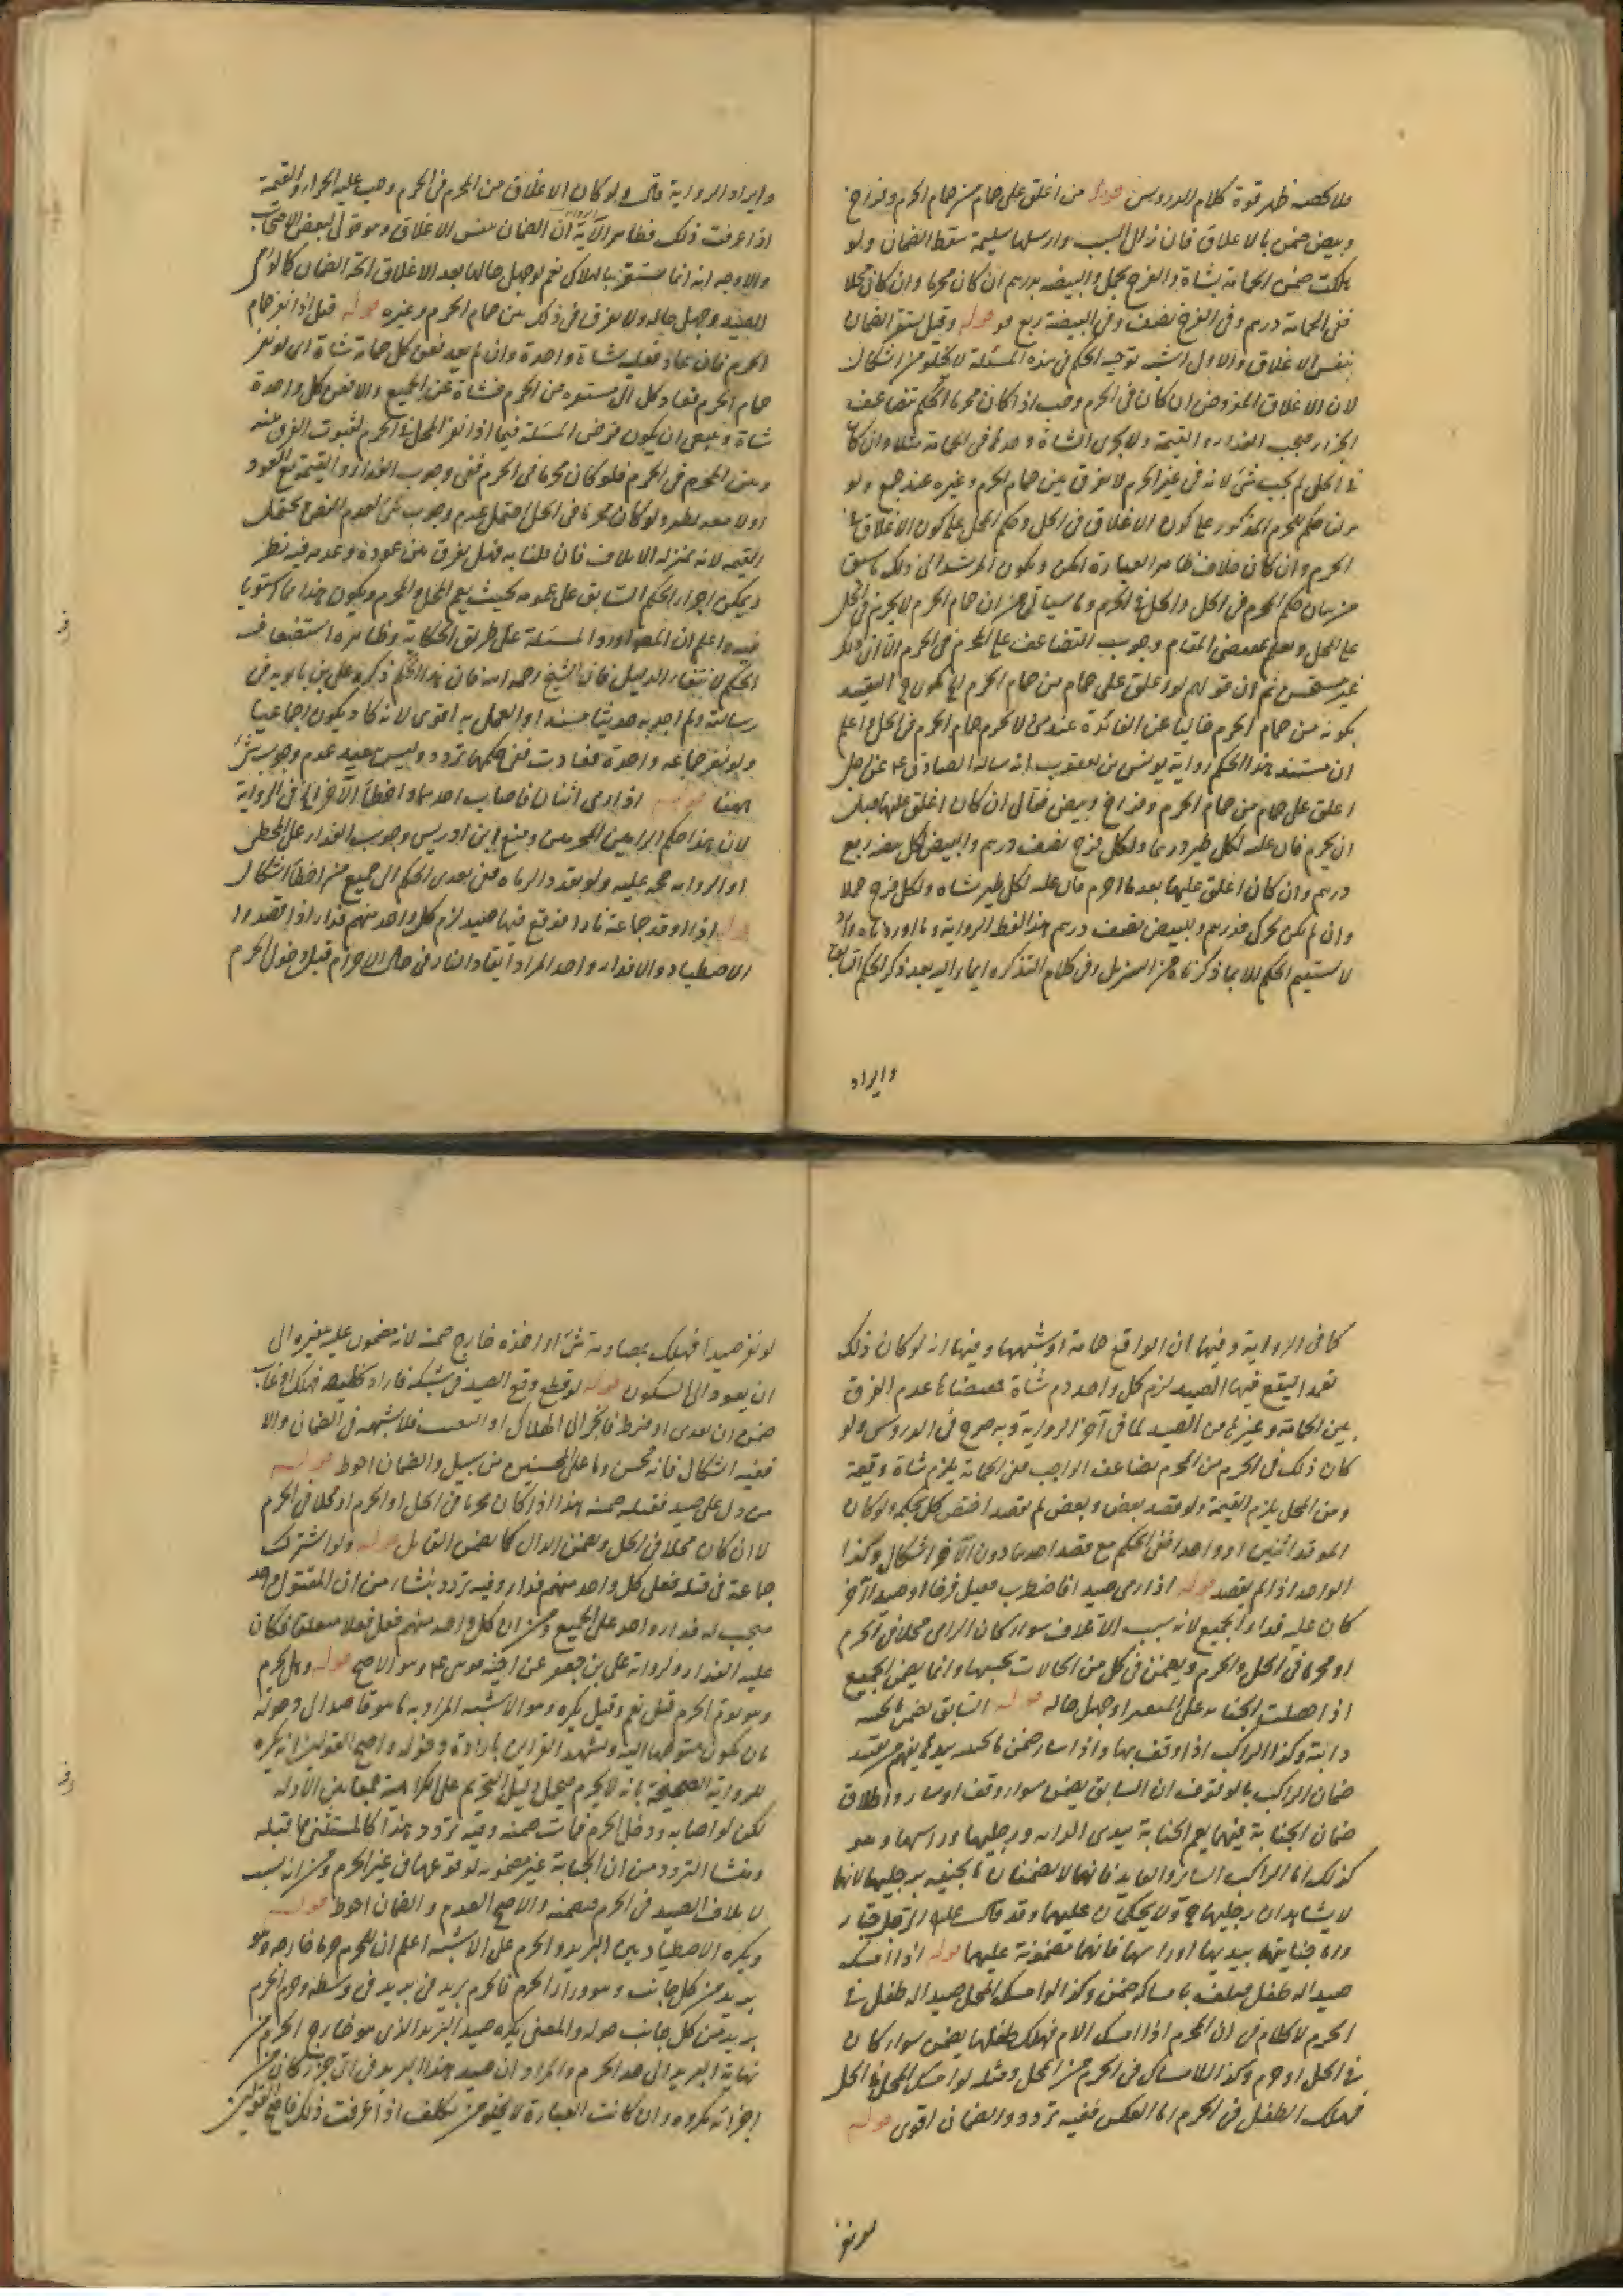 فلا محصه ظهر قوة كلام الدروس قوله من اغلق على حمام من حمام الحرم وفراخ
وبيض ضمن بالاغلاق فان زال السبب وارسلها سليمة سقط الضمان ولو
هلكت ضمن الحمامة بشاة والفرخ بحمل والبيضة بدرهم ان كان محرما وان كان محلا
ففى الحمامة درهم وفى الفرخ نصف وفى البيضة ربع قوله وقيل يستقر الضمان
بنفس الاغلاق والاول اشبه توجيه الحكم فى هذه المسئلة لا يخلو من اشكال
لان الاغلاق المفروض ان كان فى الحرم وجب اذا كان محرما الحكم بتضاعف
الجزاء فيجب الفداء والقيمة ولا يجزى الشاة وحدها فى الحمامة مثلا وان كان
فى الحل لم يجب شئ لانه فى غير الحرم لا فرق بين حمام الحرم وغيره عند جمع ولو
نزل حكم المحرم المذكور على كون الاغلاق فى الحل وحكم المحل على كون الاغلاق فى
الحرم وان كان خلاف ظاهر العبارة امكن ويكون المرشد الى ذلك ما سبق
من بيان حكم المحرم فى الحل والمحل فى الحرم وما سياتى من ان حمام الحرم لا يحرم فى الحل
على المحل ويعلم بمقتضى المقام وجوب التضاعف على المحرم فى الحرم الا ان ذلك
غير مستقيم ثم ان قولهم لو اغلق على حمام من حمام الحرم يكون التقييد
بكونه من حمام الحرم خاليا عن الفائدة عند من لا يحرم حمام الحرم فى الحل واعلم
ان مستند هذا الحكم رواية يونس بن يعقوب انه سال الصادق ع عن رجل
اغلق على حمام من حمام الحرم وفراخ وبيض فقال ان كان اغلق عليها قبل
ان يحرم فان عليه لكل طير درهما ولكل فرخ نصف درهم والبيض لكل بيضة ربع
درهم وان كان اغلق عليها بعد ما احرم فان عليه لكل طير شاة ولكل فرخ حملا
وان لم يكن تحرك فدرهم وللبيض نصف درهم هذا لفظ الرواية وما اوردناه
لا يستقيم الحكم الا بما ذكرناه من التنزيل وفى كلام التذكرة ايماء اليه بعد ذكر الحكم السابق
وايراد
وايراد الرواية قال ولو كان الاغلاق من المحرم فى الحرم وجب عليه الجزاء والقيمة
اذا عرفت ذلك فظاهر الرواية ان الضمان بنفس الاغلاق وهو قول لبعض الاصحاب
والاوجه انه انما يستقر بالهلاك نعم لو جهل حالها بعد الاغلاق اتجه الضمان كما لو رمى
الصيد وجهل حاله ولا فرق فى ذلك بين حمام الحرم وغيره قوله قيل اذا نفر حمام
الحرم فان عاد فعليه شاة واحدة وان لم يعد فعن كل حمامة شاة اى لو نفر
حمام الحرم فعاد كل الى مستقره من الحرم فشاة عن الجميع والا فعن كل واحدة
شاة وينبغى ان يكون فرض المسئلة فيما اذا نفر المحل فى الحرم لثبوت الفرق بينه
وبين المحرم فى الحرم فلو كان محرما فى الحرم ففى وجوب الفداء والقيمة مع العود
او لا معه نظر ولو كان محرما فى الحل احتمل عدم وجوب شئ لعدم النص ويحتمل
القيمة لانه بمنزلة الاتلاف فان قلنا به فهل يفرق بين عوده وعدمه فيه نظر
ويمكن اجراء الحكم السابق على عمومه بحيث يعم المحل والمحرم ويكون هذا مما استويا
فيه واعلم ان المصنف اورد المسئلة على طريق الحكاية وظاهره استضعاف
الحكم لانتفاء الدليل فان الشيخ رحمه الله قال هذا الحكم ذكره على بن بابويه فى
رسالته ولم اجد به حديثا مسندا والعمل به اقوى لانه كاد يكون اجماعيا
ولو نفر جماعة واحدة فعادت ففى حكمها تردد وليس ببعيد عدم وجوب شئ
هنا قوله اذا رمى اثنان فاصاب احدهما واخطأ الآخر الخ فى الرواية
لان هذا حكم الراميين المحرمين ومنع ابن ادريس وجوب الفداء على المخطى
والرواية حجة عليه ولو تعدد الرماة ففى تعدى الحكم الى جميع من اخطأ اشكال
قوله اذا اوقد جماعة نارا فوقع فيها صيد لزم كل واحد منهم فداء اذا قصدوا
الاصطياد والا فداء واحد المراد ايقاد النار فى حال الاحرام قبل دخول الحرم
كما فى الرواية وفيها ان الواقع حمامة او شبهها وفيها انه لو كان ذلك
تعمدا ليقع فيها الصيد لزم كل واحد دم شاة ومقتضاها عدم الفرق
بين الحمامة وغيرها من الصيد لما فى آخر الرواية وبه صرح فى الدروس ولو
كان ذلك فى الحرم من المحرم تضاعف الواجب ففى الحمامة يلزم شاة وقيمة
ومن المحل يلزم القيمة ولو قصد بعض وبعض لم يقصد اختص كل بحكمه ولو كان
الموقد اثنين او واحدا ففى الحكم مع قصد احدهما دون الآخر اشكال وكذا
الواحد اذا لم يقصد قوله اذا رمى صيدا فاضطرب فقتل فرخا او صيدا آخر
كان عليه فداء الجميع لانه سبب الاتلاف سواء كان الرامى محلا فى الحرم
او محرما فى الحل والحرم ويضمن فى كل من الحالات بحسبها وانما يضمن الجميع
اذا حصلت الجناية على المنفر او جهل حاله قوله السائق يضمن ما تجنيه
دابته وكذا الراكب اذا وقف بها واذا سار ضمن ما تجنيه بيديها يفهم من تقييد
ضمان الراكب بالوقوف ان السائق يضمن سواء وقف او سار واطلاق
ضمان الجناية فيهما يعم الجناية بيدى الدابة ورجليها وراسها وهو
كذلك اما الراكب السائر والقائد فانهما لا يضمنان ما تجنيه برجليها لانهما
لا يشاهدان رجليها ولا يحكيان عليهما وقد قال عليه السلام الرجل جبار
واما جنايتها بيديها او راسها فانها مضمونة عليهما قوله اذا امسك
صيدا له طفل فتلف بامساكه ضمن وكذا لو امسك المحل صيدا له طفل فى
الحرم لا كلام فى ان المحرم اذا امسك الام فهلك طفلها يضمن سواء كان
فى الحل او حرم وكذا الامساك فى الحرم من المحل ومثله لو امسك المحل فى الحل
فهلك الطفل فى الحرم اما العكس ففيه تردد والضمان اقوى قوله
لو نفر
لو نفر صيدا فهلك بمصادمة شئ او اخذه جارح ضمنه لانه مضمون عليه بنفيره الى
ان يعود الى السكون قوله لو وقع الصيد فى شبكة فاراد تخليصه فهلك او عاب
ضمن ان تعدى او فرط فانجر الى الهلاك او التعيب فلا شبهة فى الضمان والا
ففيه اشكال فانه محسن وما على المحسنين من سبيل والضمان احوط قوله
من دل على صيد فقتل ضمنه هذا اذا كان محرما فى الحل او الحرم او محلا فى الحرم
لا ان كان محلا فى الحل ويضمن الدال كما يضمن القاتل قوله ولو اشترك
جماعة فى قتله فعلى كل واحد منهم فداء وفيه تردد ينشأ من ان المقتول واحد
فيجب له فداء واحد على الجميع ومن ان كل واحد منهم فعل فعلا متعلقا فكان
عليه الفداء ولرواية على بن جعفر عن اخيه موسى ع وهو الاصح قوله وهل يحرم
وهو يؤم الحرم قيل نعم وقيل يكره وهو الاشبه المراد به ما هو قاصد الى دخوله
بان يكون متوجها اليه ويشهد القراين بارادة دخوله واصح القولين انه يكره
للرواية الصحيحة بانه لا يحرم فيحمل دليل التحريم على الكراهية جمعا بين الادلة
لكن لو اصابه ودخل الحرم فمات ضمنه وفيه تردد هذا كالمستثنى مما قبله
ومنشأ التردد من ان الجناية غير مضمونة لوقوعها فى غير الحرم ومن انه بسبب
لاتلاف الصيد فى الحرم فيضمنه والاصح العدم والضمان احوط قوله
ويكره الاصطياد بين البريد والحرم على الاشبه اعلم ان للحرم حرما خارجه وهو
بريد من كل جانب وهو وراء الحرم فالحرم بريد فى بريد فى وسطه وحرم الحرم
بريد من كل جانب حوله والمعنى يكره صيد البريد الذى هو خارج الحرم من
نهاية البريد الى حد الحرم والمراد ان صيد هذا البريد فى اى جزء كان من
اجزائه مكروه وان كانت العبارة لا يخلو من تكلف اذا عرفت ذلك فاصح القولين